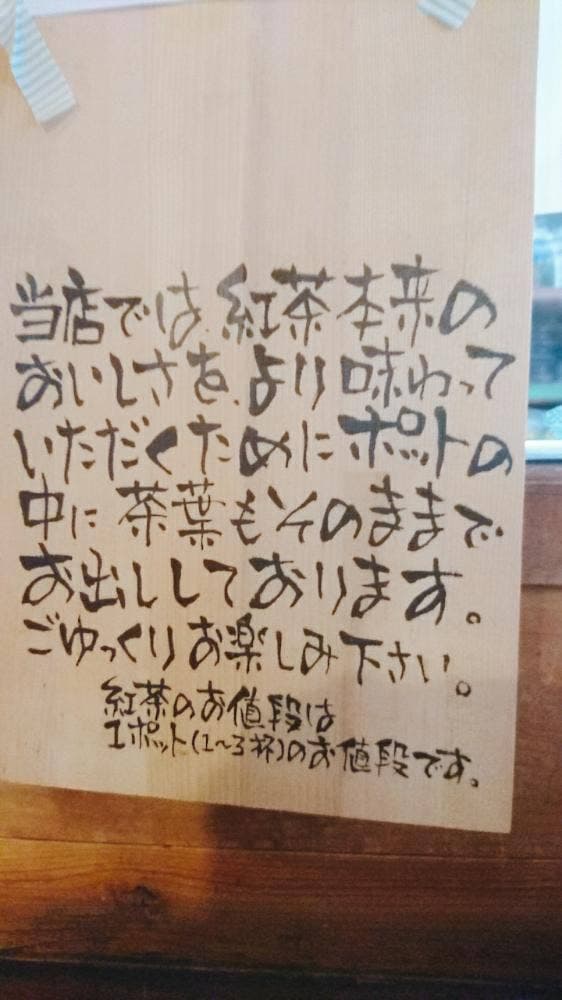 当店では紅茶本来の
おいしさを、より味わって
いただくためにポットの
中に茶葉もそのままで
お出ししております。
ごゆっくりお楽しみ下さい。
紅茶のお値段は
1ポット(1〜3杯)のお値段です。